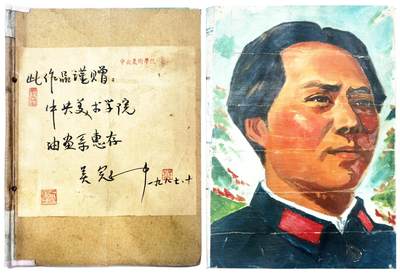 中央美術學院
此作品谨赠：
中央美术学院
油画系惠存
吴冠中 一九六七、十